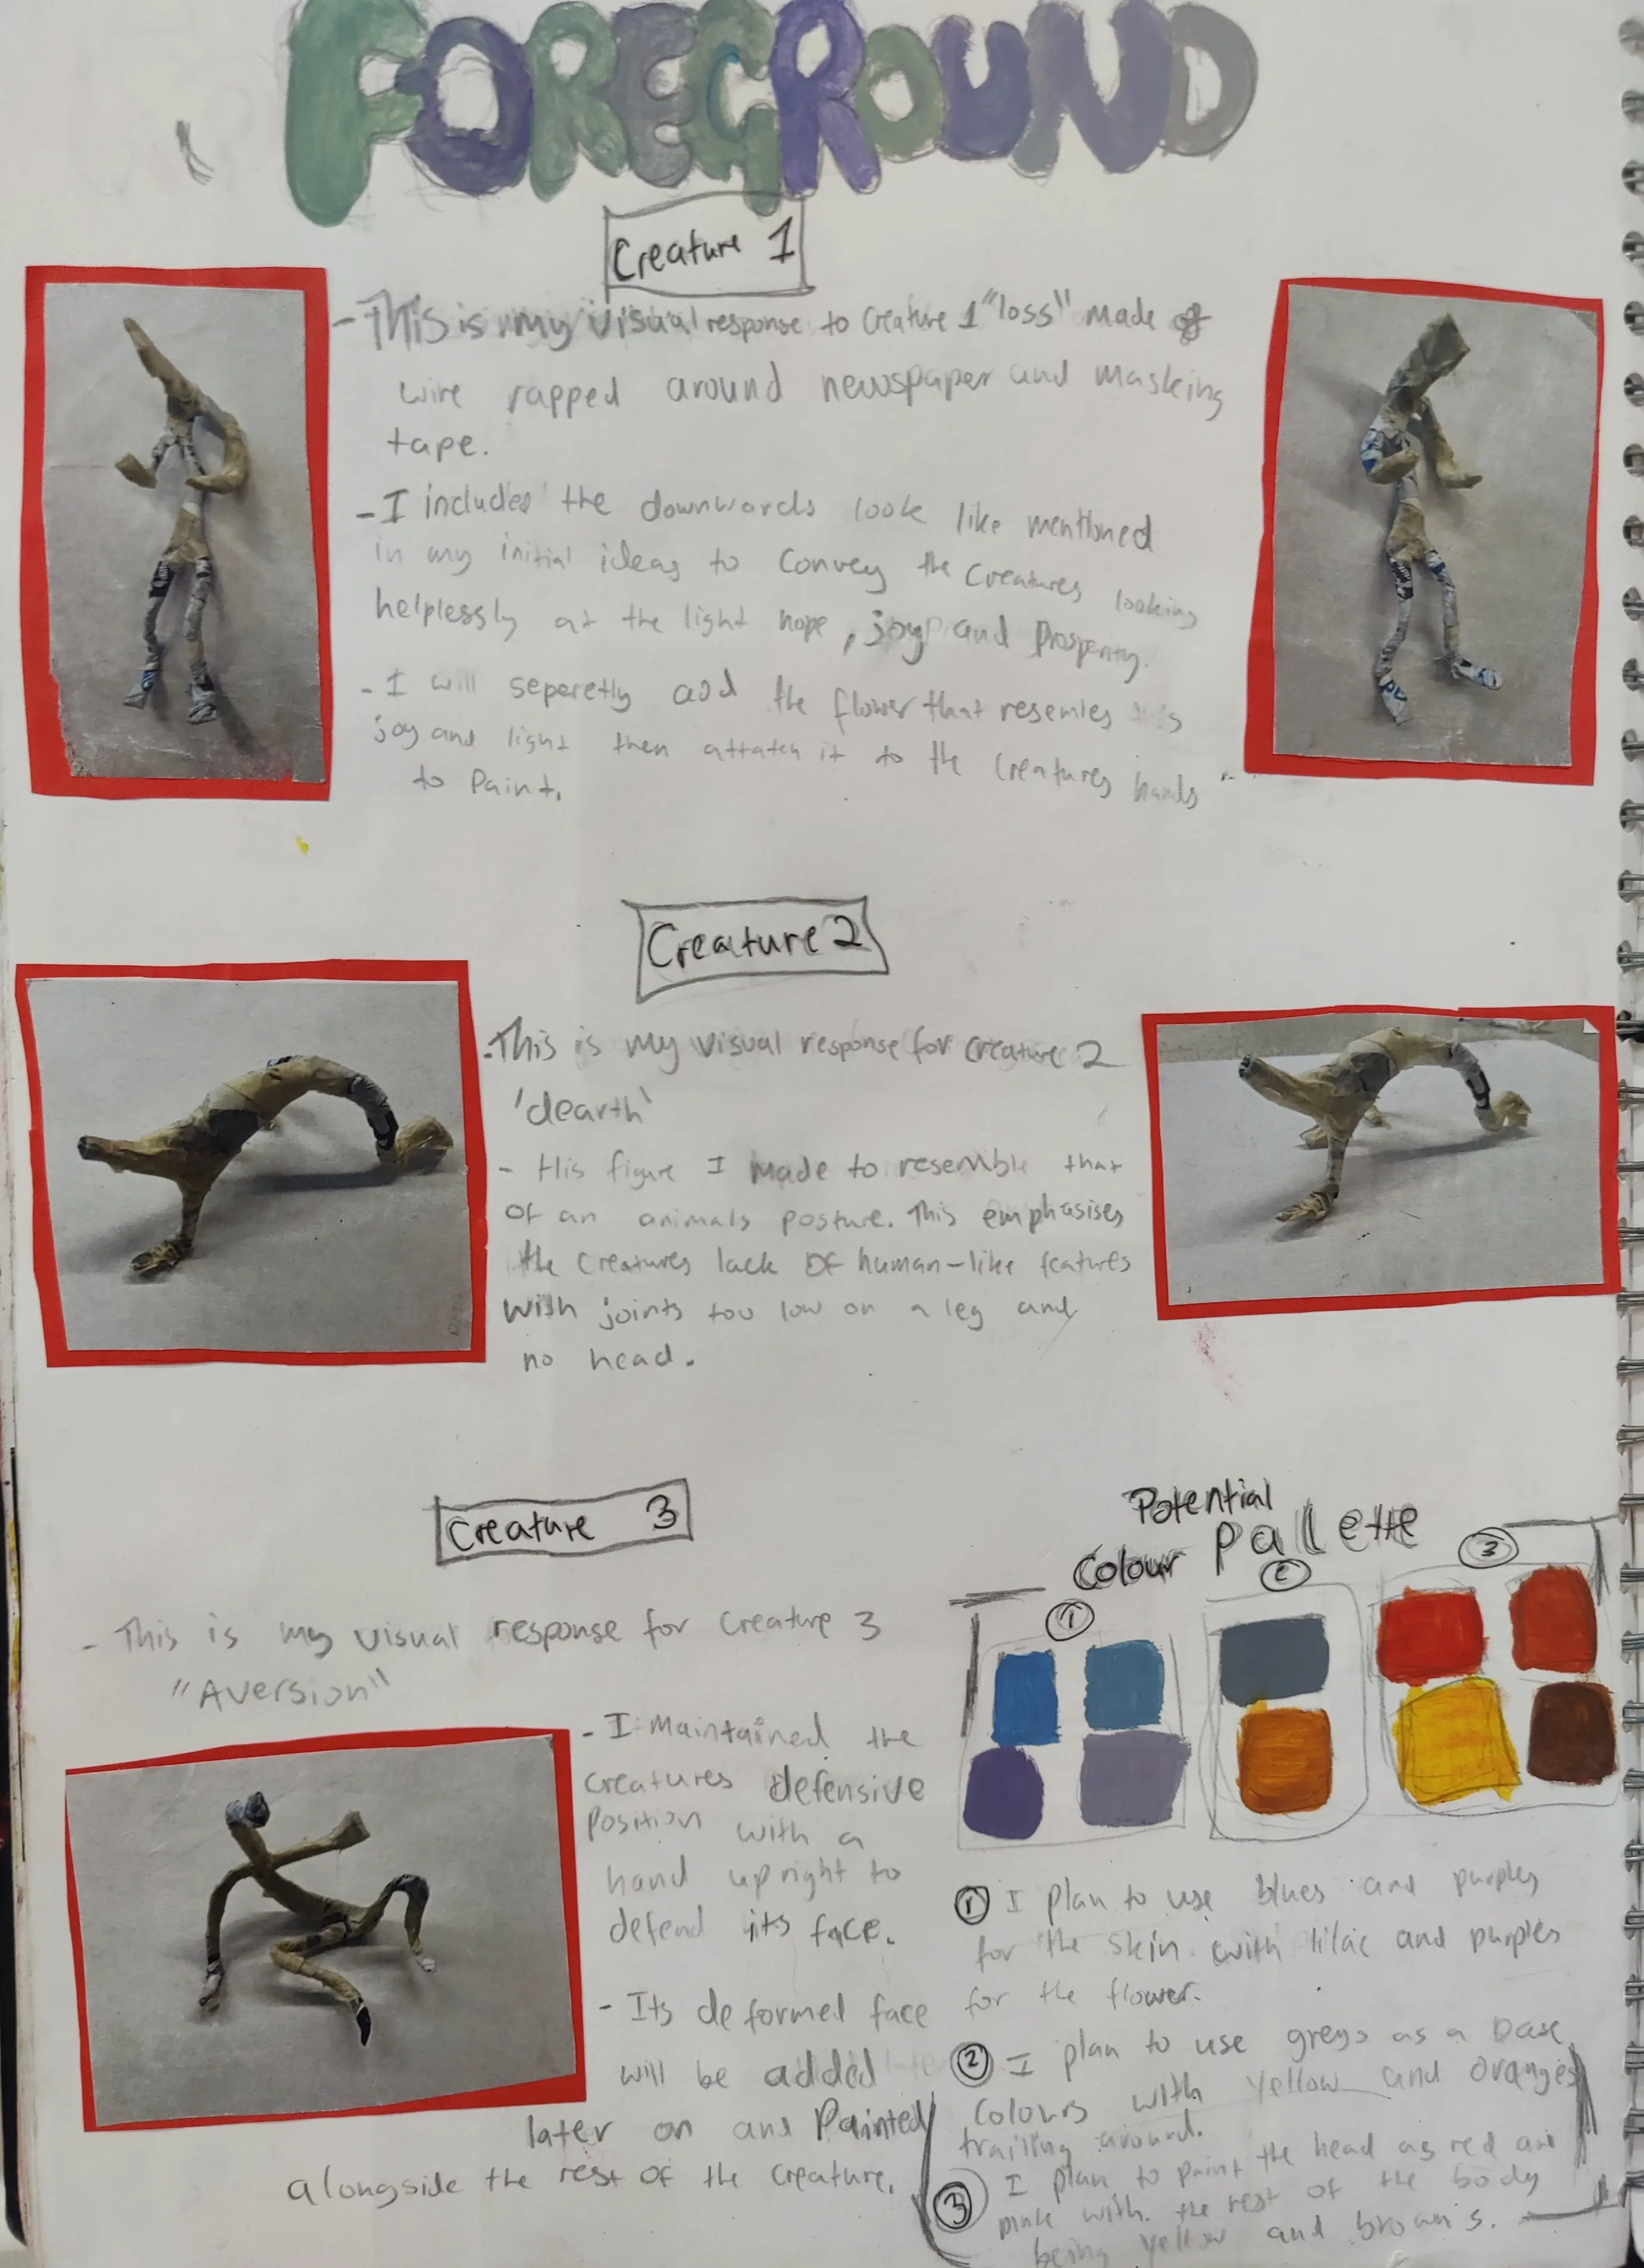 FOREGROUND
Creature 1
- This is my visual response to Creature 1 "loss" made of
wire rapped around newspaper and masking
tape.
- I included the downwards look like mentioned
in my initial ideas to convey the creatures looking
helplessly at the light hope, joy and prosperity.
- I will seperetly add the flower that resemles
joy and light then attatch it to the creatures hands
to paint.
Creature 2
- This is my visual response for creature 2
'dearth'
- His figure I made to resemble that
of an animals posture. This emphasises
the creatures lack of human-like features
with joints too low on a leg and
no head.
Creature 3
- This is my visual response for creature 3
"Aversion"
- I maintained the
creatures defensive
position with a
hand upright to
defend its face.
- Its deformed face
will be added
later on and painted
alongside the rest of the creature.
Potential
Colour Pallette
1
2
3
1 I plan to use blues and purples
for the skin with lilac and purples
for the flower.
2 I plan to use greys as a base
colours with yellow and oranges
trailing around.
3 I plan to paint the head as red and
pink with the rest of the body
being yellow and browns.